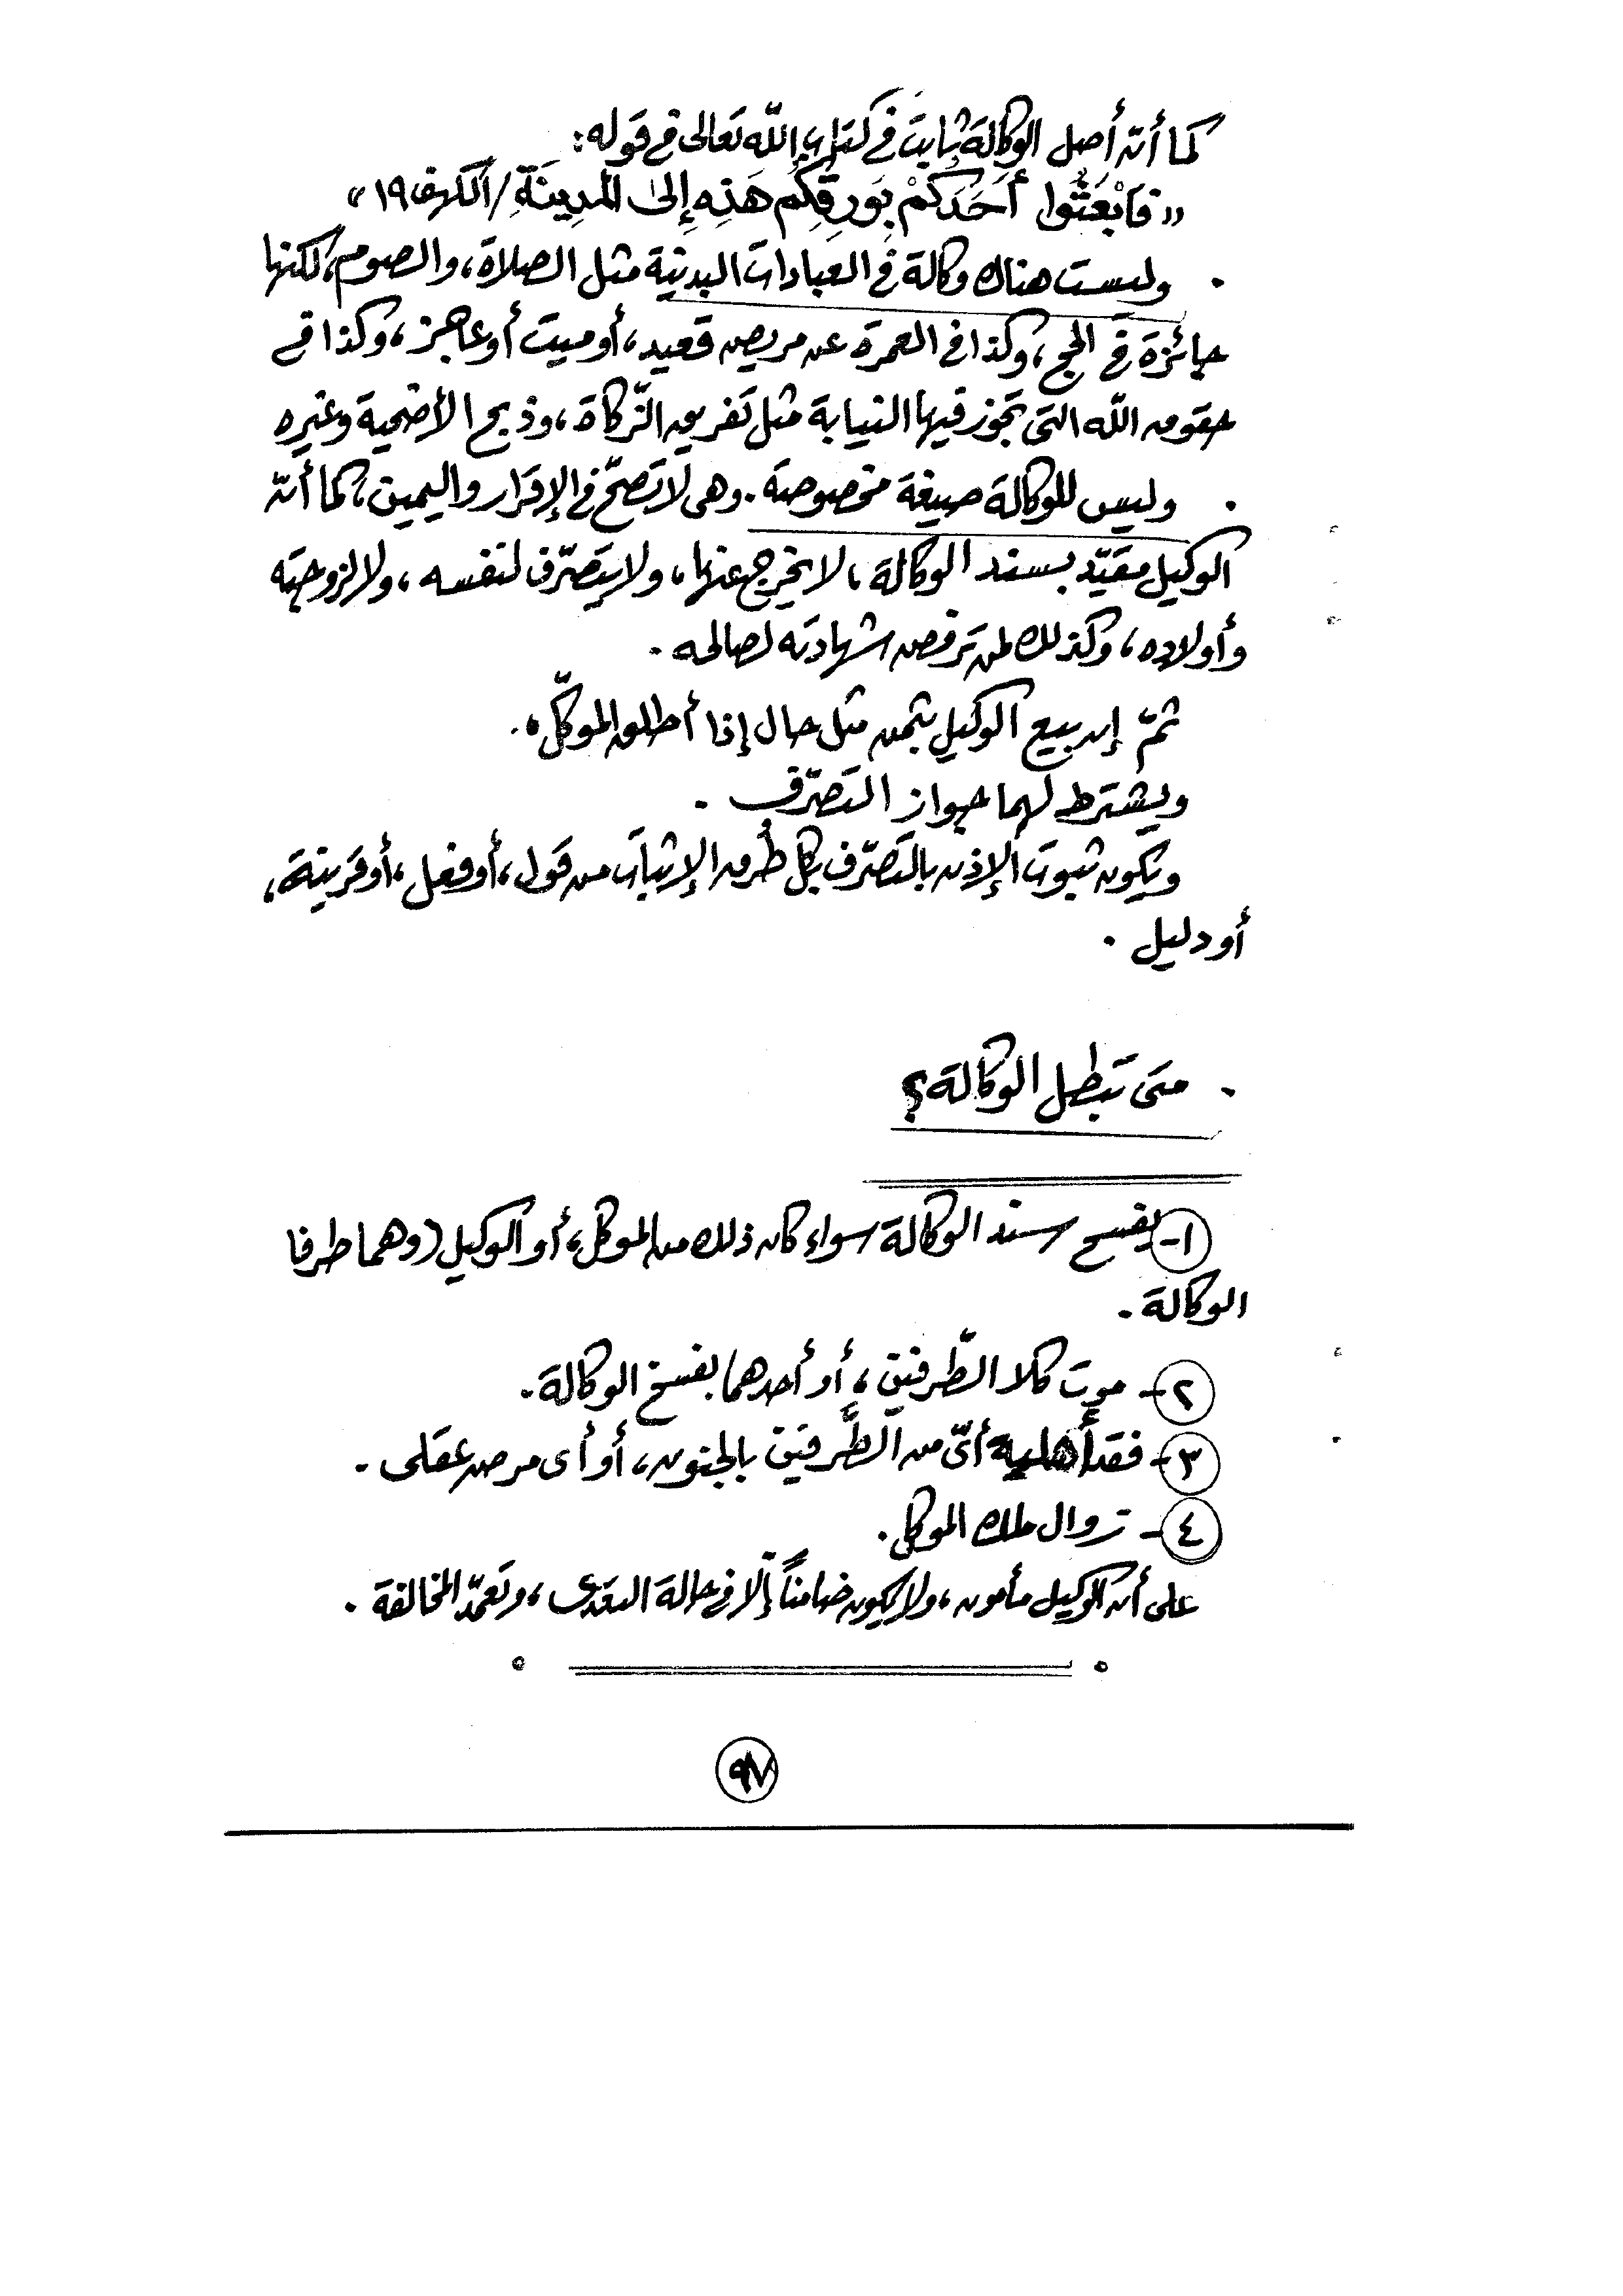 كما أنّ أصل الوكالة ثابت في كتاب الله تعالى في قوله:
«فَابْعَثُوا أَحَدَكُمْ بِوَرِقِكُم هَذِهِ إِلىٰ المَدِينَةِ/الكهف ١٩»
. وليست هناك وكالة في العبادات البدنية مثل الصلاة، والصوم، لكنها
جائزة في الحج، وكذا في العمرة عن مريض قعيد، أو ميت أو عاجز، وكذا في
حقوق الله التى تجوز فيها النيابة مثل تفريق الزّكاة، وذبح الأضحية وغيره
. وليس للوكالة صيغة مخصوصة. وهى لا تصحّ في الإقرار واليمين، كما أنّ
الوكيل مقيّد بسند الوكالة، لا يخرج عنها، ولا يتصرّف لنفسه، ولا لزوجته
وأولاده، وكذلك لمن ترفض شهادته لصالحه.
ثمّ إن بيع الوكيل بثمن مثل حال إذا أطلق الموكّل.
ويشترط لهما جواز التصرّف.
ويكون ثبوت الإذن بالتصرّف بكل طُرق الإثبات من قول، أو فعل، أو قرينة،
أو دليل.
. متى تبطل الوكالة؟
١- بفسح سند الوكالة سواء كان ذلك من الموكل، أو الوكيل (وهما طرفا
الوكالة.
٢- موت كلا الطّرفين، أو أحدهما بفسخ الوكالة.
٣- فقد أهلية أىّ من الطَّرفين بالجنون، أو أى مرض عقلى.
٤- زوال ملك الموكل.
على أن الوكيل مأمون، ولا يكون ضامناً إلّا في حالة التعدى، وتعمّد المخالفة.
٩٧